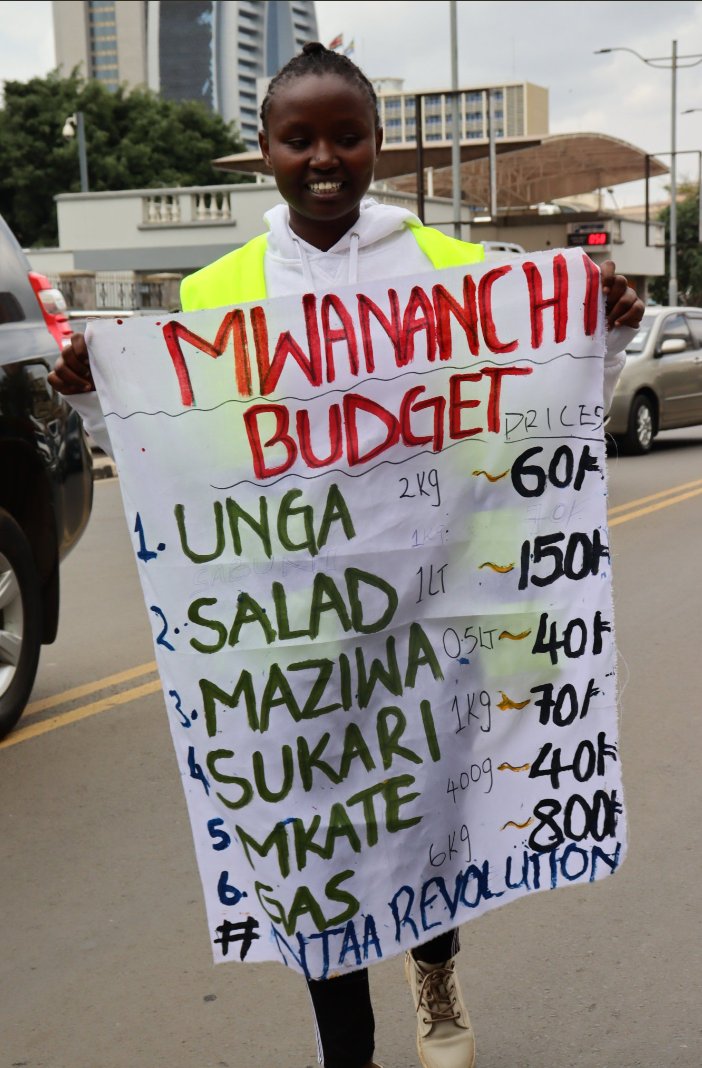 MWANANCHI
BUDGET
PRICES
1. UNGA 2Kg ~ 60/=
2. SALAD 1LT ~ 150/=
3. MAZIWA 0.5LT ~ 40/=
4. SUKARI 1Kg ~ 70/=
5 MKATE 400g ~ 40/=
6. GAS 6Kg ~ 800/=
# NJAA REVOLUTION
050